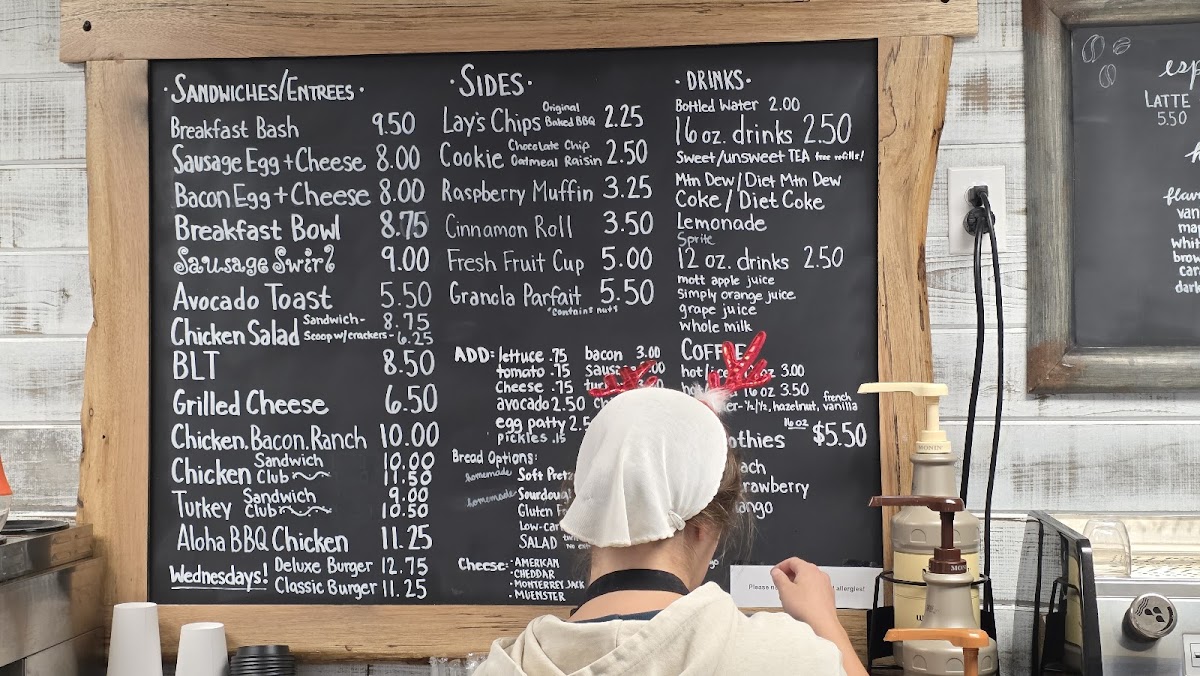 ·SANDWICHES/ENTREES·
Breakfast Bash 9.50
Sausage Egg + Cheese 8.00
Bacon Egg + Cheese 8.00
Breakfast Bowl 8.75
Sausage Swirl 9.00
Avocado Toast 5.50
Chicken Salad Sandwich- 8.75
Scoop w/crackers- 6.25
BLT 8.50
Grilled Cheese 6.50
Chicken.Bacon.Ranch 10.00
Chicken Sandwich 10.00
Club 11.50
Turkey Sandwich 9.00
Club 10.50
Aloha BBQ Chicken 11.25
Wednesdays! Deluxe Burger 12.75
Classic Burger 11.25
·SIDES·
Lay's Chips Original Baked BBQ 2.25
Cookie Chocolate Chip Oatmeal Raisin 2.50
Raspberry Muffin 3.25
Cinnamon Roll 3.50
Fresh Fruit Cup 5.00
Granola Parfait 5.50
*contains nuts
ADD: lettuce .75 bacon 3.00
tomato .75
cheese .75
avocado 2.50
egg patty
pickles .15
Bread Options:
homemade Soft
homemade
Gluten
SALAD
Cheese: -AMERICAN
-CHEDDAR
-MONTERREY JACK
-MUENSTER
·DRINKS·
Bottled Water 2.00
16 oz. drinks 2.50
Sweet/unsweet TEA free refills!
Mtn Dew/Diet Mtn Dew
Coke/Diet Coke
Lemonade
Sprite
12 oz. drinks 2.50
mott apple juice
simply orange juice
grape juice
whole milk
COFFEE
3.00
16 oz 3.50
-1/2/1/2, hazelnut, french vanilla
16oz $5.50
Please allergies!
LATTE
5.50
MONIN